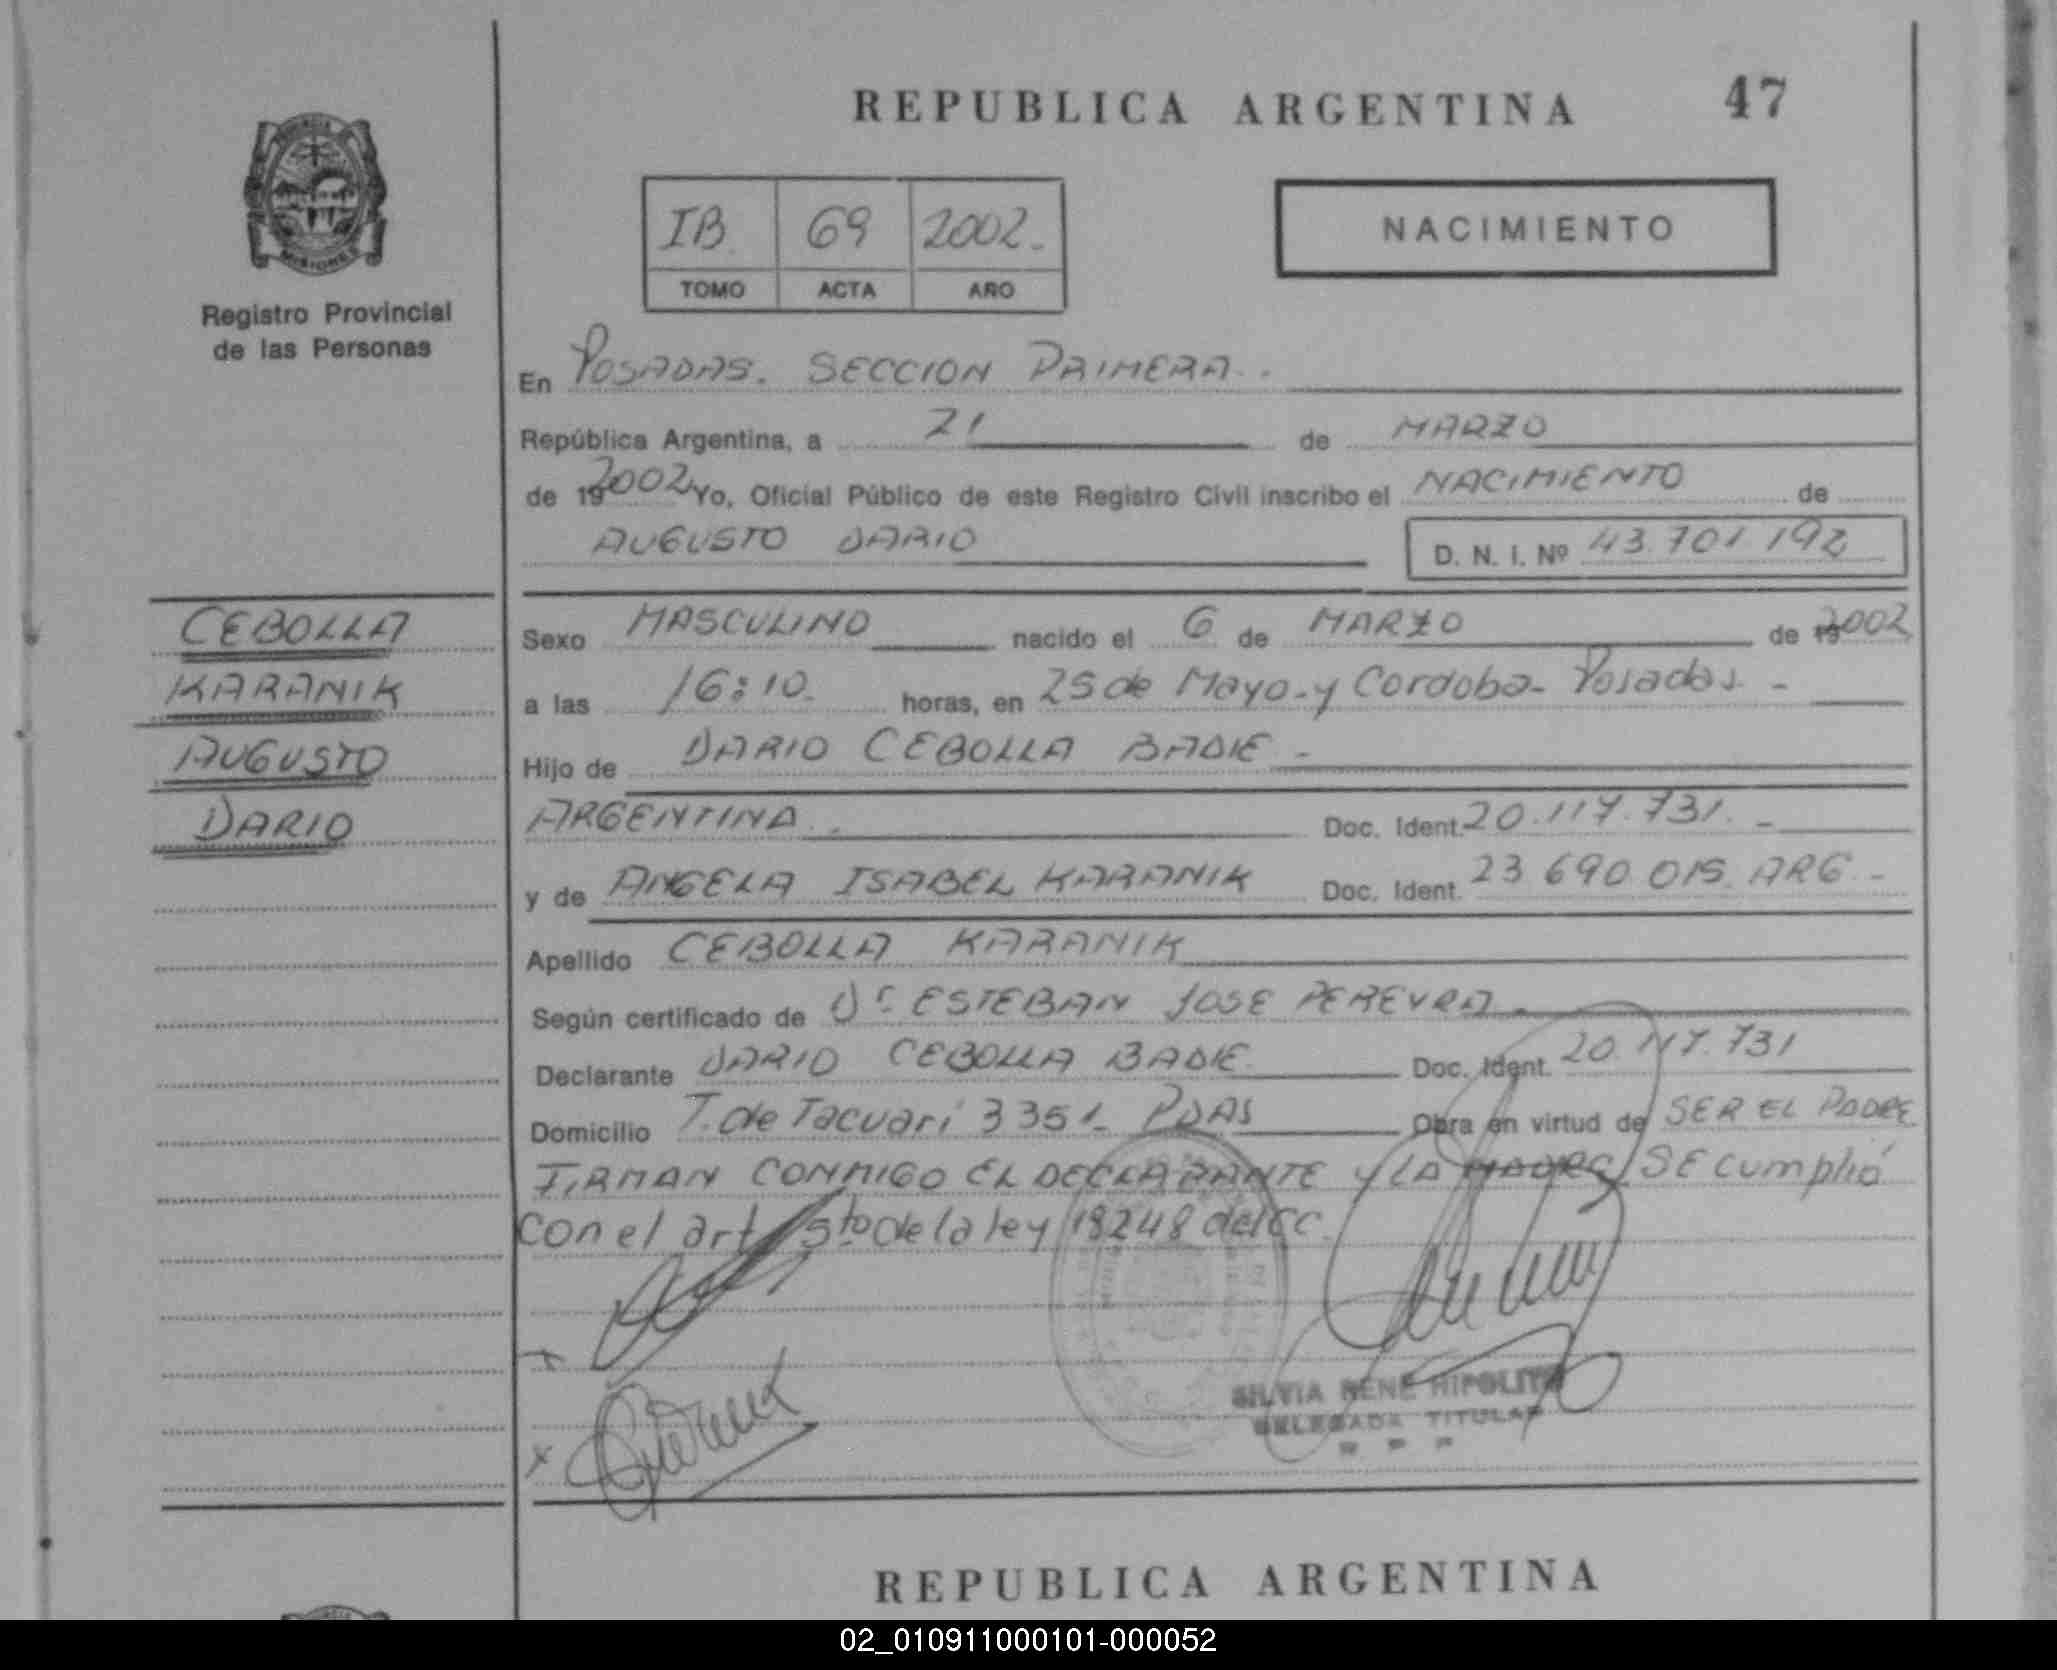 REPUBLICA ARGENTINA 47
MISIONES
Registro Provincial
de las Personas
IB. 69 2002.
TOMO ACTA AÑO
NACIMIENTO
En POSADAS. SECCION PRIMERA.
República Argentina, a 21 de MARZO
de 192002 Yo, Oficial Público de este Registro Civil inscribo el NACIMIENTO de
AUGUSTO DARIO D. N. I. Nº 43.701.192
CEBOLLA
KARANIK
AUGUSTO
DARIO
Sexo MASCULINO nacido el 6 de MARZO de 192002
a las 16:10. horas, en 25 de Mayo-y Cordoba- Posadas. -
Hijo de DARIO CEBOLLA BADIE -
ARGENTINA. Doc. Ident. 20.117.731. -
y de ANGELA ISABEL KARANIK Doc. Ident. 23 690 015 ARG. -
Apellido CEBOLLA KARANIK
Según certificado de Dr ESTEBAN JOSE PEREYRA -
Declarante DARIO CEBOLLA BADIE. Doc. Ident. 20.117.731
Domicilio T. de Tacuari 3351- PDAS Obra en virtud de SER EL PADRE
FIRMAN CONMIGO EL DECLARANTE Y LA MADRE/SE cumplió
con el art 5to de la ley 18248 del CC.
SILVIA RENE HIPOLITO
DELEGADA TITULAR
REPUBLICA ARGENTINA
02_010911000101-000052